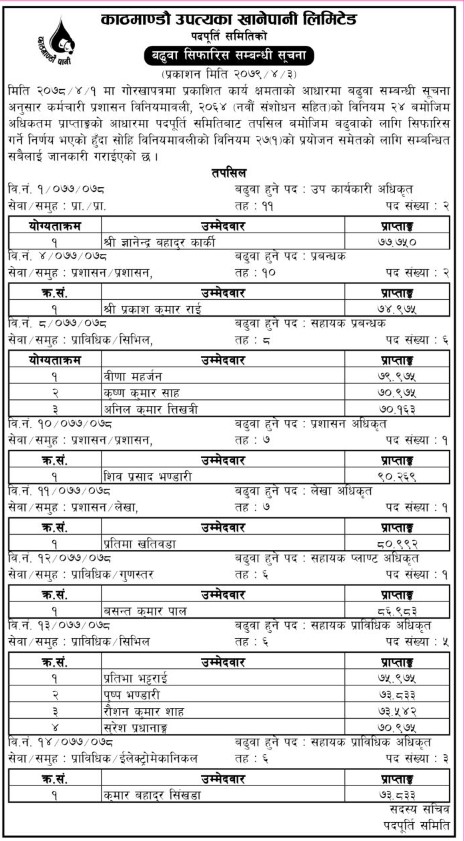 काठमाण्डौ उपत्यका खानेपानी लिमिटेड
पदपूर्ति समितिको
बढुवा सिफारिस सम्बन्धी सूचना
(प्रकाशन मिति २०७९/४/३)
काठमाण्डौ पानी
मिति २०७९/४/१ मा गोरखापत्रमा प्रकाशित कार्य क्षमताको आधारमा बढुवा सम्बन्धी सूचना
अनुसार कर्मचारी प्रशासन विनियमावली, २०६४ (नवौं संशोधन सहित)को विनियम २४ बमोजिम
अधिकतम प्राप्ताङ्कको आधारमा पदपूर्ति समितिबाट तपसिल बमोजिम बढुवाको लागि सिफारिस
गर्ने निर्णय भएको हुँदा सोहि विनियमावलीको विनियम २७(१)को प्रयोजन समेतको लागि सम्बन्धित
सबैलाई जानकारी गराईएको छ ।
तपसिल
वि.नं. १/०७७/०७८ बढुवा हुने पद : उप कार्यकारी अधिकृत
सेवा/समुह : प्रा./प्रा. तह : ११ पद संख्या : २
योग्यताक्रम उम्मेदवार प्राप्ताङ्क
१ श्री ज्ञानेन्द्र बहादुर कार्की ७७.७५०
वि.नं. ४/०७७/०७८ बढुवा हुने पद : प्रबन्धक
सेवा/समुह : प्रशासन/प्रशासन, तह : १० पद संख्या : २
क्र.सं. उम्मेदवार प्राप्ताङ्क
१ श्री प्रकाश कुमार राई ७४.९७५
वि.नं. ८/०७७/०७८ बढुवा हुने पद : सहायक प्रबन्धक
सेवा/समुह : प्राविधिक/सिभिल, तह : ८ पद संख्या : ६
योग्यताक्रम उम्मेदवार प्राप्ताङ्क
१ वीणा महर्जन ७९.९७५
२ कृष्ण कुमार साह ७०.९७५
३ अनिल कुमार त्तिखत्री ७०.१६३
वि.नं. १०/०७७/०७८ बढुवा हुने पद : प्रशासन अधिकृत
सेवा/समुह : प्रशासन/प्रशासन, तह : ७ पद संख्या : १
क्र.सं. उम्मेदवार प्राप्ताङ्क
१ शिव प्रसाद भण्डारी ९०.२६९
वि.नं. ११/०७७/०७८ बढुवा हुने पद : लेखा अधिकृत
सेवा/समुह : प्रशासन/लेखा, तह : ७ पद संख्या : १
क्र.सं. उम्मेदवार प्राप्ताङ्क
१ प्रतिमा खतिवडा ८०.९९२
वि.नं. १२/०७७/०७८ बढुवा हुने पद : सहायक प्लाण्ट अधिकृत
सेवा/समुह : प्राविधिक/गुणस्तर तह : ६ पद संख्या : १
क्र.सं. उम्मेदवार प्राप्ताङ्क
१ बसन्त कुमार पाल ८६.९८३
वि.नं. १३/०७७/०७८ बढुवा हुने पद : सहायक प्राविधिक अधिकृत
सेवा/समुह : प्राविधिक/सिभिल तह : ६ पद संख्या : ५
क्र.सं. उम्मेदवार प्राप्ताङ्क
१ प्रतिभा भट्टराई ७५.९७५
२ पुष्प भण्डारी ७३.८३३
३ रौशन कुमार शाह ७३.५४२
४ सुरेश प्रधानाङ्ग ७०.९७५
वि.नं. १४/०७७/०७८ बढुवा हुने पद : सहायक प्राविधिक अधिकृत
सेवा/समुह : प्राविधिक/ईलेक्ट्रोमेकानिकल तह : ६ पद संख्या : ३
क्र.सं. उम्मेदवार प्राप्ताङ्क
१ कुमार बहादुर सिंखडा ७३.८३३
सदस्य सचिव
पदपूर्ति समिति